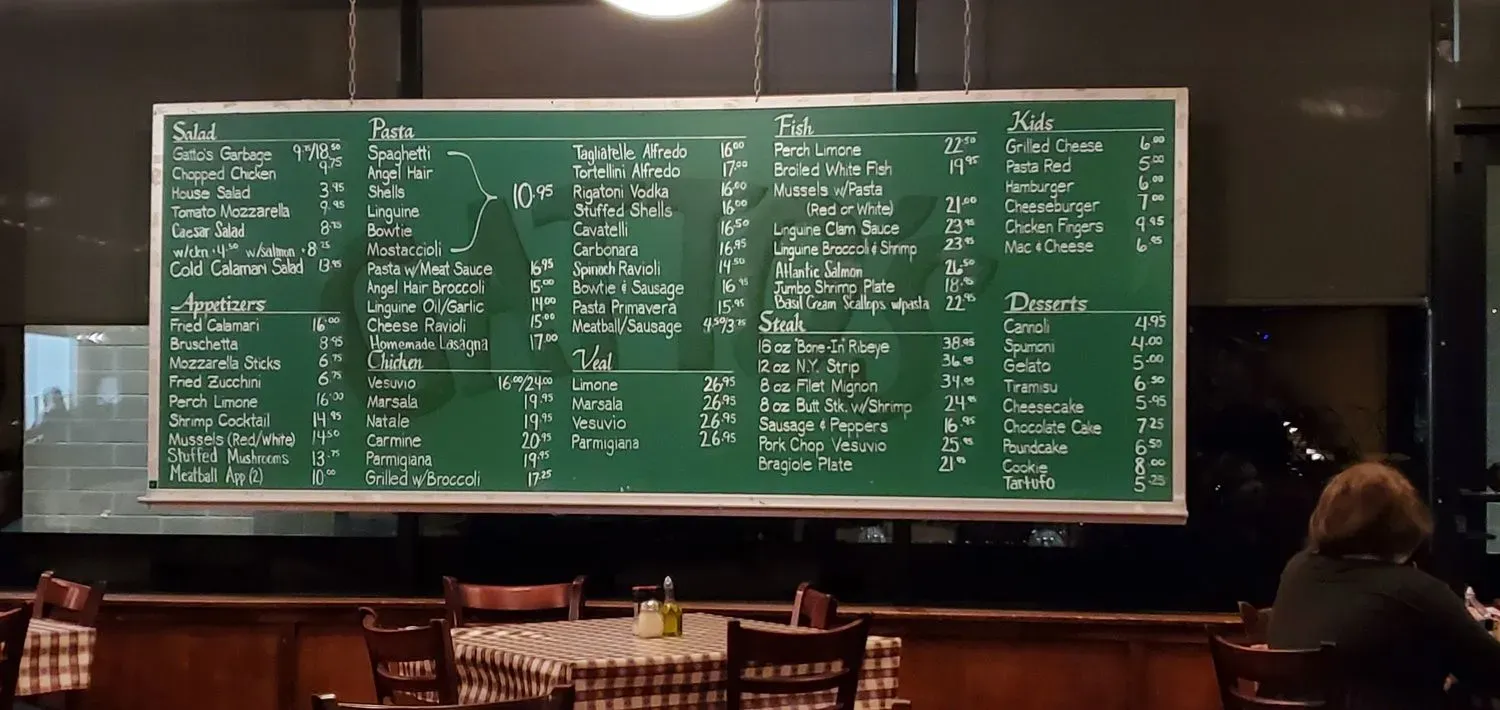 Salad
Gatto's Garbage 9.75/18.50
Chopped Chicken 9.75
House Salad 3.95
Tomato Mozzarella 9.95
Caesar Salad 8.75
w/ckn • 4.50 w/salmon • 8.75
Cold Calamari Salad 13.95
Appetizers
Fried Calamari 16.00
Bruschetta 8.95
Mozzarella Sticks 6.75
Fried Zucchini 6.75
Perch Limone 16.00
Shrimp Cocktail 14.95
Mussels (Red/White) 14.50
Stuffed Mushrooms 13.75
Meatball App (2) 10.00
Pasta
Spaghetti
Angel Hair
Shells
Linguine
Bowtie
Mostaccioli
10.95
Pasta w/Meat Sauce 16.95
Angel Hair Broccoli 15.00
Linguine Oil/Garlic 14.00
Cheese Ravioli 15.00
Homemade Lasagna 17.00
Tagliatelle Alfredo 16.00
Tortellini Alfredo 17.00
Rigatoni Vodka 16.00
Stuffed Shells 16.00
Cavatelli 16.50
Carbonara 16.95
Spinach Ravioli 14.50
Bowtie & Sausage 16.95
Pasta Primavera 15.95
Meatball/Sausage 4.50/3.75
Chicken
Vesuvio 16.00/24.00
Marsala 19.95
Natale 19.95
Carmine 20.95
Parmigiana 19.95
Grilled w/Broccoli 17.25
Veal
Limone 26.95
Marsala 26.95
Vesuvio 26.95
Parmigiana 26.95
Fish
Perch Limone 22.50
Broiled White Fish 19.95
Mussels w/Pasta
(Red or White) 21.00
Linguine Clam Sauce 23.95
Linguine Broccoli & Shrimp 23.95
Atlantic Salmon 26.50
Jumbo Shrimp Plate 18.95
Basil Cream Scallops w/pasta 22.95
Steak
16 oz "Bone-In" Ribeye 38.95
12 oz N.Y. Strip 36.95
8 oz Filet Mignon 34.95
8 oz Butt Stk. w/Shrimp 24.95
Sausage & Peppers 16.95
Pork Chop Vesuvio 25.95
Bragiole Plate 21.95
Kids
Grilled Cheese 6.00
Pasta Red 5.00
Hamburger 6.00
Cheeseburger 7.00
Chicken Fingers 9.95
Mac & Cheese 6.95
Desserts
Cannoli 4.95
Spumoni 4.00
Gelato 5.00
Tiramisu 6.50
Cheesecake 5.95
Chocolate Cake 7.25
Poundcake 6.50
Cookie 8.00
Tartufo 5.25
GATTO'S